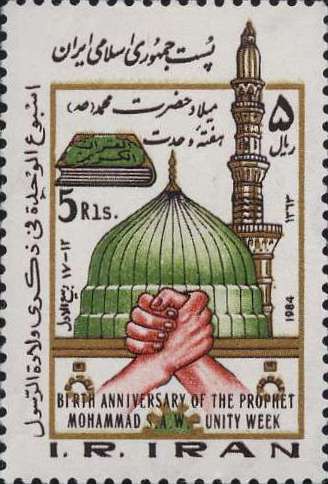 پست جمهوری اسلامی ایران
میلاد حضرت محمد (صه)
هفته وحدت
۵
ریال
القرآن
الکریم
5 Rls.
۱۳۶۳
1984
۱۲-۱۷ ربیع الاول
اسبوع الوحدة فی ذکری ولادة الرسول
BIRTH ANNIVERSARY OF THE PROPHET
MOHAMMAD S.A.W. UNITY WEEK
I.R. IRAN